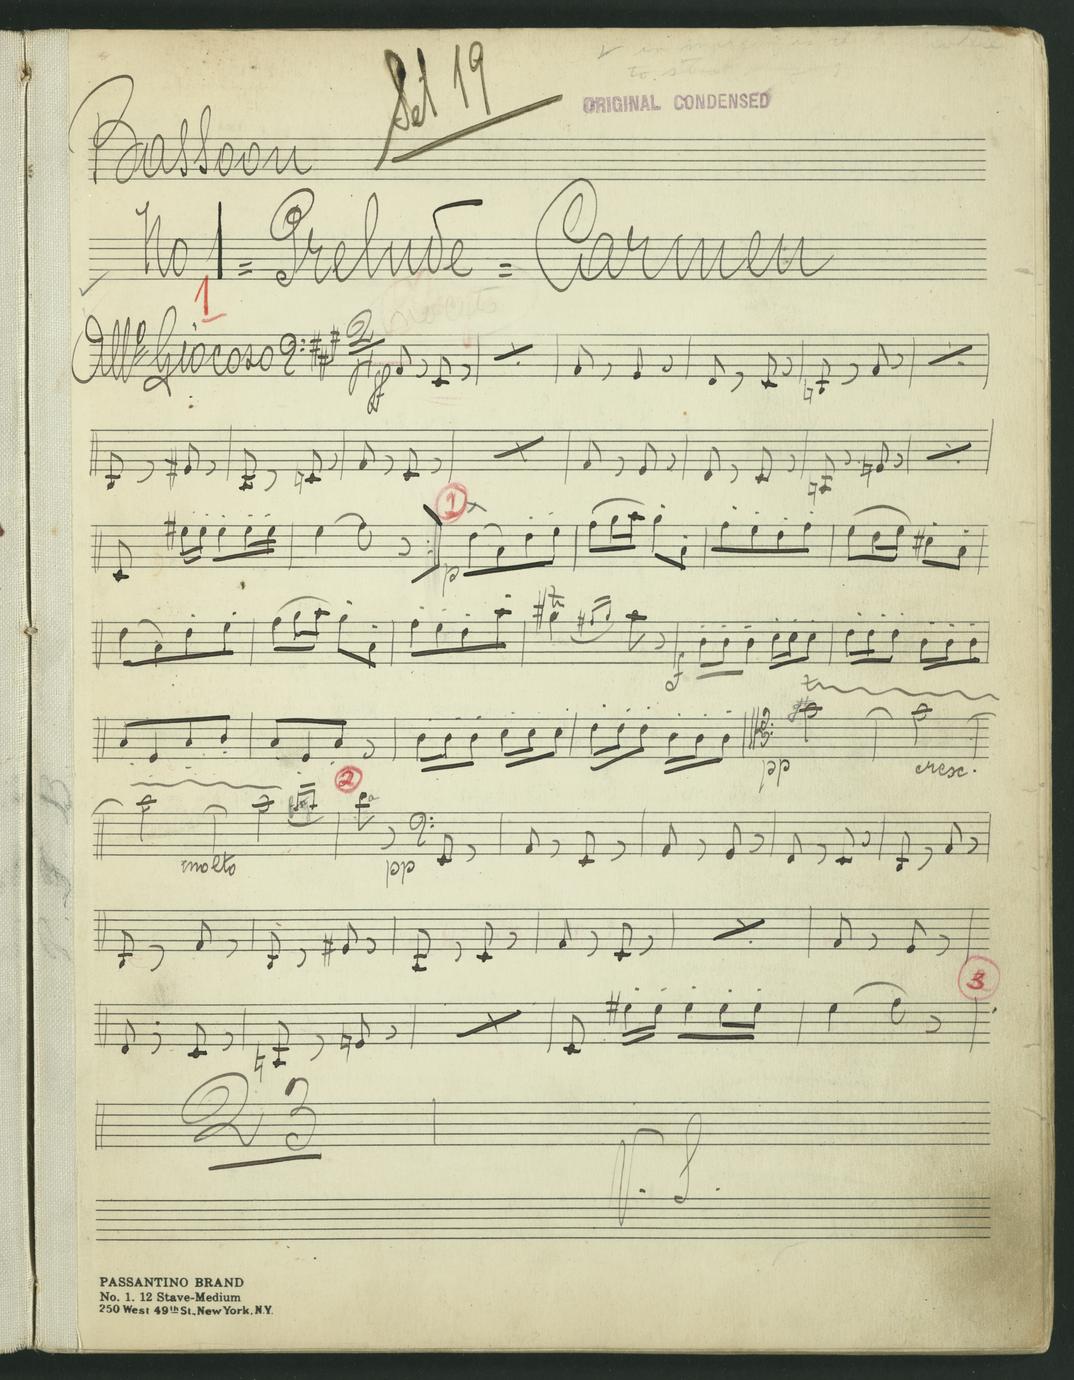 Set 19
ORIGINAL CONDENSED
Bassoon
No 1 = Prelude = Carmen
1
Allº Giocoso 2 ff
1
p
tr
f
tr
pp cresc.
2
molto pp
3
23
V. S.
PASSANTINO BRAND
No. 1. 12 Stave-Medium
250 West 49th St., New York, N.Y.